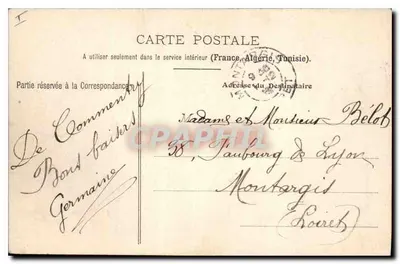 CARTE POSTALE
A utiliser seulement dans le service intérieur (France, Algérie, Tunisie).
Partie réservée à la Correspondance
Adresse du Destinataire
De Commentry
Bons baisers
Germaine
Madame et Monsieur Bélot
Faubourg de Lyon
Montargis
(Loiret)
CPAPHIL